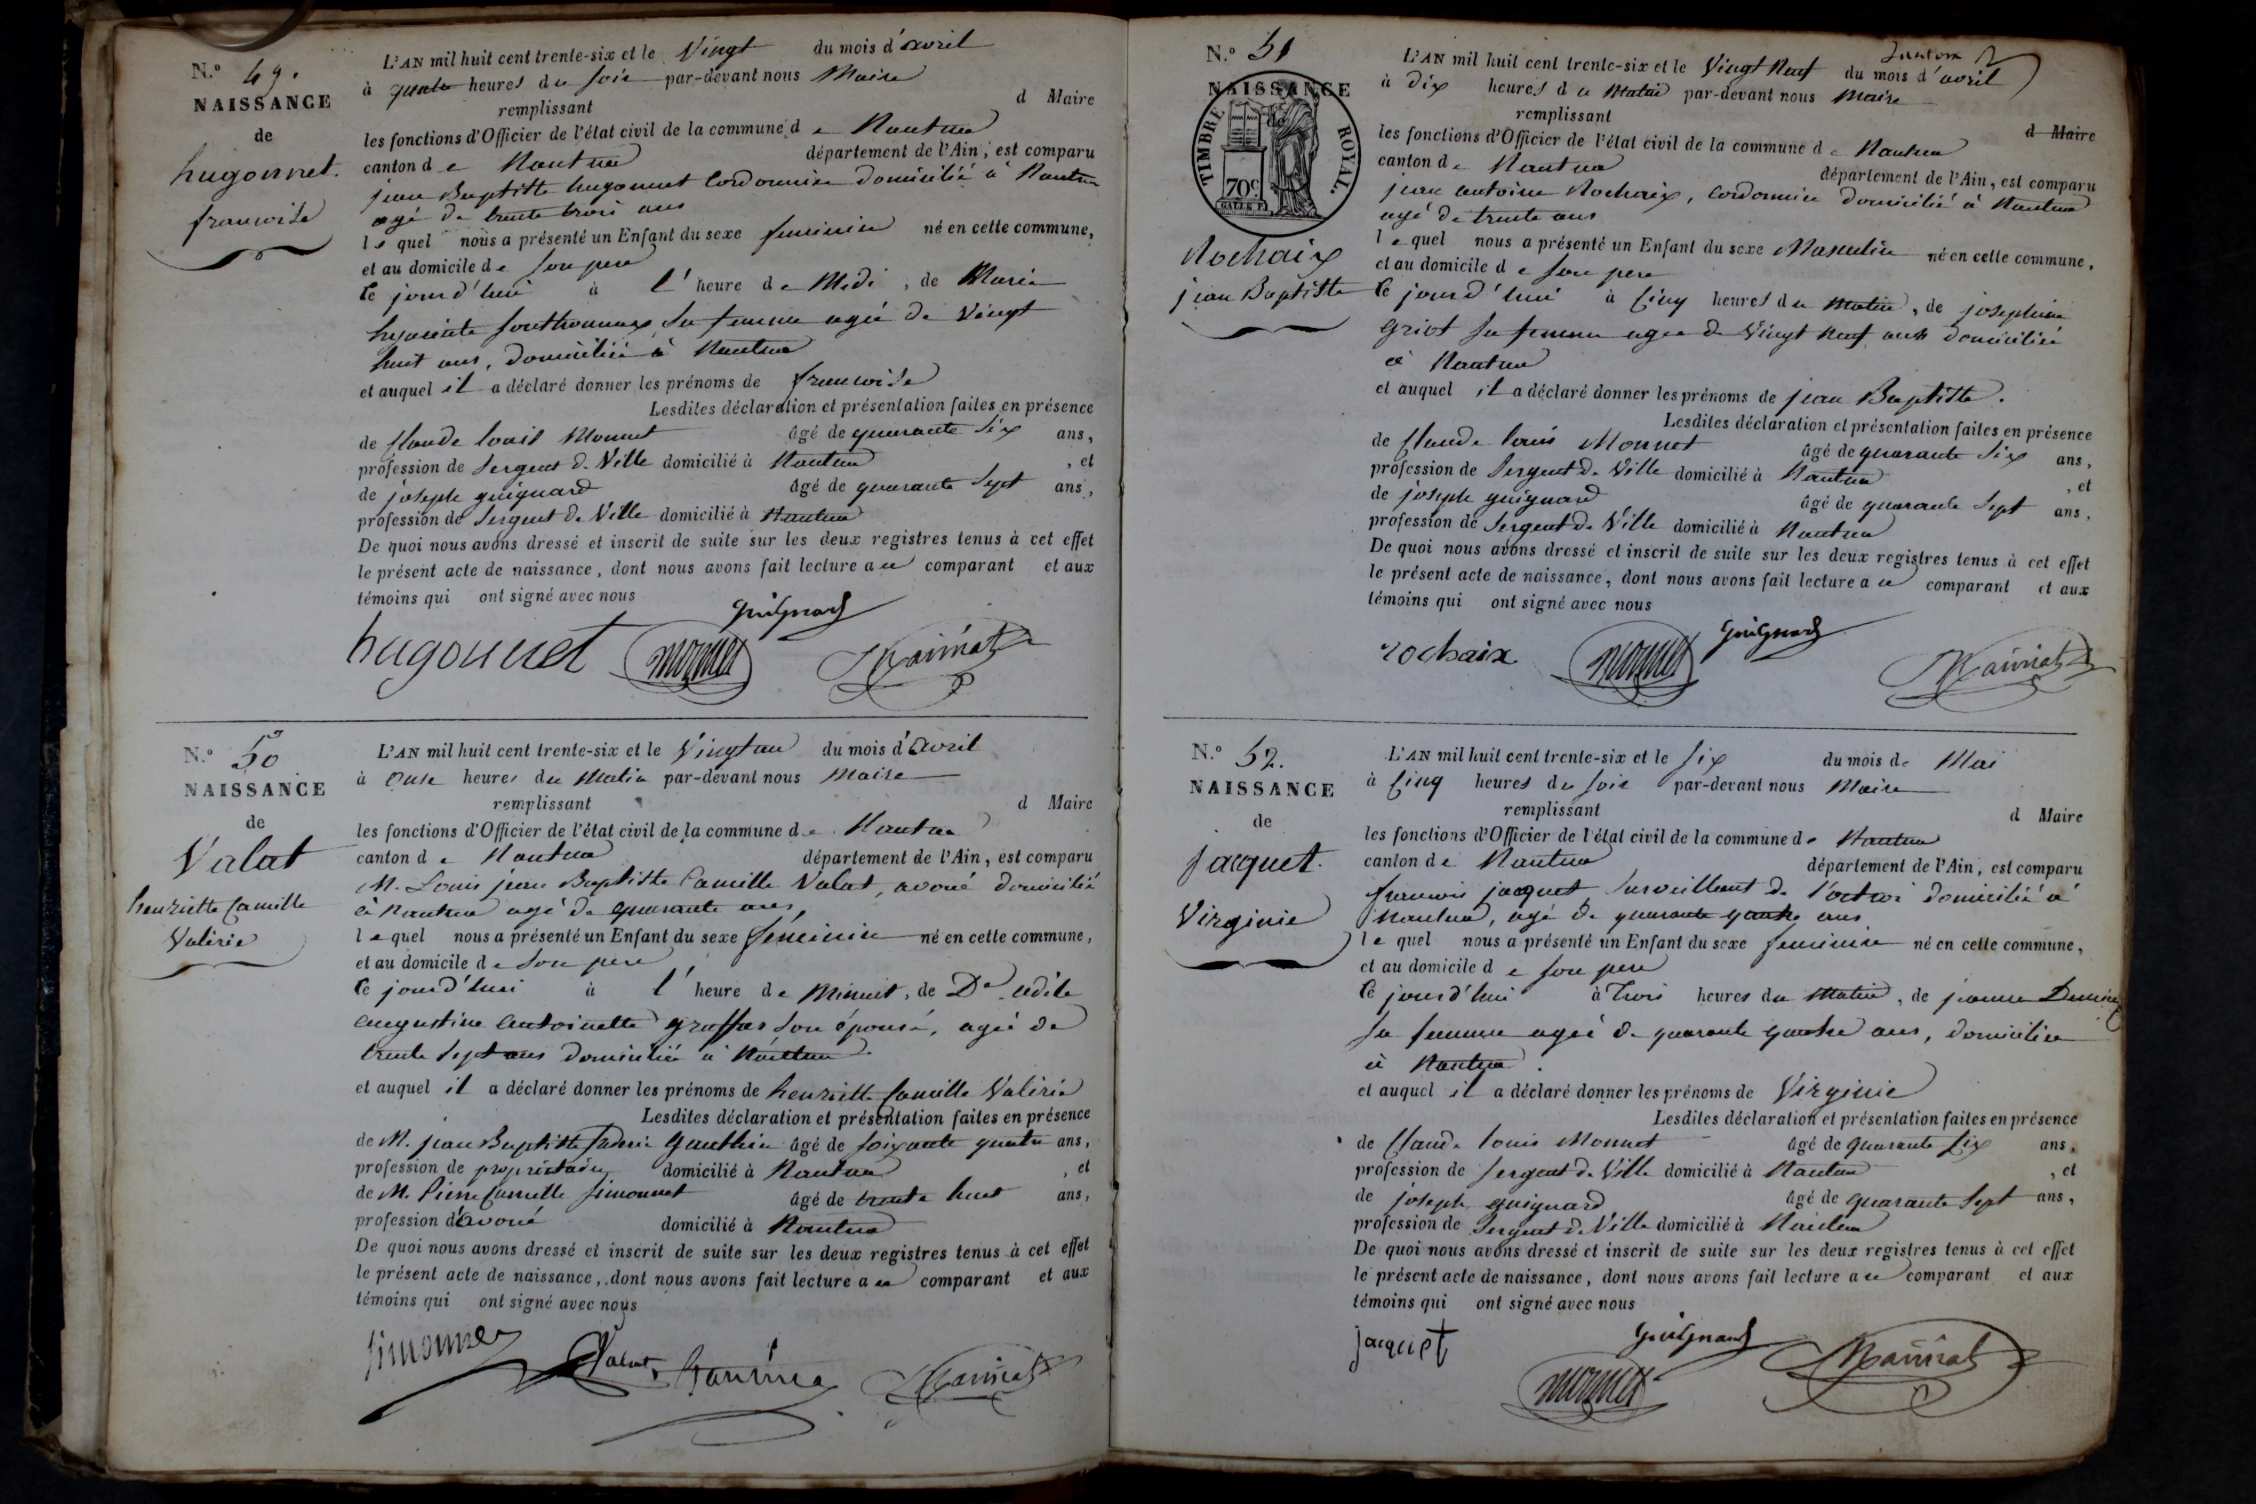 N.º 49.
NAISSANCE
de
hugonnet.
francoise
L'AN mil huit cent trente-six et le Vingt du mois d'avril
à quatre heures du soir par-devant nous Maire
remplissant d Maire
les fonctions d'Officier de l'état civil de la commune de Nantua
canton de Nantua département de l'Ain, est comparu
jean Baptiste hugonnet Cordonnier domicilié à Nantua
agé de trente trois ans
lequel nous a présenté un Enfant du sexe feminin né en cette commune,
et au domicile de son pere
Ce jourd'hui à l'heure de Midi, de Marie
hyacinte southonnax sa femme agée de Vingt
huit ans, domiciliée à Nantua
et auquel il a déclaré donner les prénoms de francoise
Lesdites déclaration et présentation faites en présence
de Claude louis Monnet âgé de quarante Six ans,
profession de Sergent de Ville domicilié à Nantua, et
de joseph guignard âgé de quarante Sept ans,
profession de Sergent de Ville domicilié à Nantua
De quoi nous avons dressé et inscrit de suite sur les deux registres tenus à cet effet
le présent acte de naissance, dont nous avons fait lecture au comparant et aux
témoins qui ont signé avec nous
Guignard
hugonnet monnet
N.º 50
NAISSANCE
de
Valat
henriette Camille
Valérie
L'AN mil huit cent trente-six et le Vingt un du mois d'avril
à Onse heures du Matin par-devant nous Maire
remplissant d Maire
les fonctions d'Officier de l'état civil de la commune de Nantua
canton de Nantua département de l'Ain, est comparu
M. Louis jean Baptiste Camille Valat, avoué domicilié
à Nantua agé de quarante ans,
lequel nous a présenté un Enfant du sexe féminin né en cette commune,
et au domicile de son pere
Ce jourd'hui à l'heure de Minuit, de De
augustine antoinette son épouse, agée de
trente Sept ans domiciliée à Nantua.
et auquel il a déclaré donner les prénoms de henriette Camille Valérie
Lesdites déclaration et présentation faites en présence
de M. jean Baptiste Gauthier âgé de soixante quatre ans,
profession de propriétaire domicilié à Nantua, et
de M. Pierre Camille Simonnet âgé de trente huit ans,
profession d'avoué domicilié à Nantua
De quoi nous avons dressé et inscrit de suite sur les deux registres tenus à cet effet
le présent acte de naissance, dont nous avons fait lecture au comparant et aux
témoins qui ont signé avec nous
Simonnet Valat
N.º 51
NAISSANCE
de
TIMBRE ROYAL.
70c
Rochaix
jean Baptiste
L'AN mil huit cent trente-six et le Vingt Neuf du mois d'avril
à Dix heures du Matin par-devant nous Maire
remplissant d Maire
les fonctions d'Officier de l'état civil de la commune de Nantua
canton de Nantua département de l'Ain, est comparu
jean antoine Rochaix, Cordonnier domicilié à Nantua
agé de trente ans
lequel nous a présenté un Enfant du sexe Masculin né en cette commune,
et au domicile de son pere
Ce jourd'hui à Cinq heures du Matin, de josephine
griot sa femme agée de Vingt Neuf ans domiciliée
à Nantua
et auquel il a déclaré donner les prénoms de jean Baptiste.
Lesdites déclaration et présentation faites en présence
de Claude louis Monnet âgé de quarante Six ans,
profession de Sergent de Ville domicilié à Nantua, et
de joseph guignard âgé de quarante Sept ans,
profession de Sergent de Ville domicilié à Nantua
De quoi nous avons dressé et inscrit de suite sur les deux registres tenus à cet effet
le présent acte de naissance, dont nous avons fait lecture au comparant et aux
témoins qui ont signé avec nous
Guignard
rochaix monnet
N.º 52.
NAISSANCE
de
jacquet.
Virginie
L'AN mil huit cent trente-six et le Six du mois de Mai
à Cinq heures du soir par-devant nous Maire
remplissant d Maire
les fonctions d'Officier de l'état civil de la commune de Nantua
canton de Nantua département de l'Ain, est comparu
francois jacquet Surveillant de l'octroi domicilié à
Nantua, agé de quarante quatre ans
lequel nous a présenté un Enfant du sexe feminin né en cette commune,
et au domicile de son pere
Ce jourd'hui à Trois heures du Matin, de jeanne
sa femme agée de quarante quatre ans, domiciliée
à Nantua.
et auquel il a déclaré donner les prénoms de Virginie
Lesdites déclaration et présentation faites en présence
de Claude louis Monnet âgé de quarante Six ans,
profession de Sergent de Ville domicilié à Nantua, et
de joseph guignard âgé de quarante Sept ans,
profession de Sergent de Ville domicilié à Nantua
De quoi nous avons dressé et inscrit de suite sur les deux registres tenus à cet effet
le présent acte de naissance, dont nous avons fait lecture au comparant et aux
témoins qui ont signé avec nous
jacquet Guignard
monnet